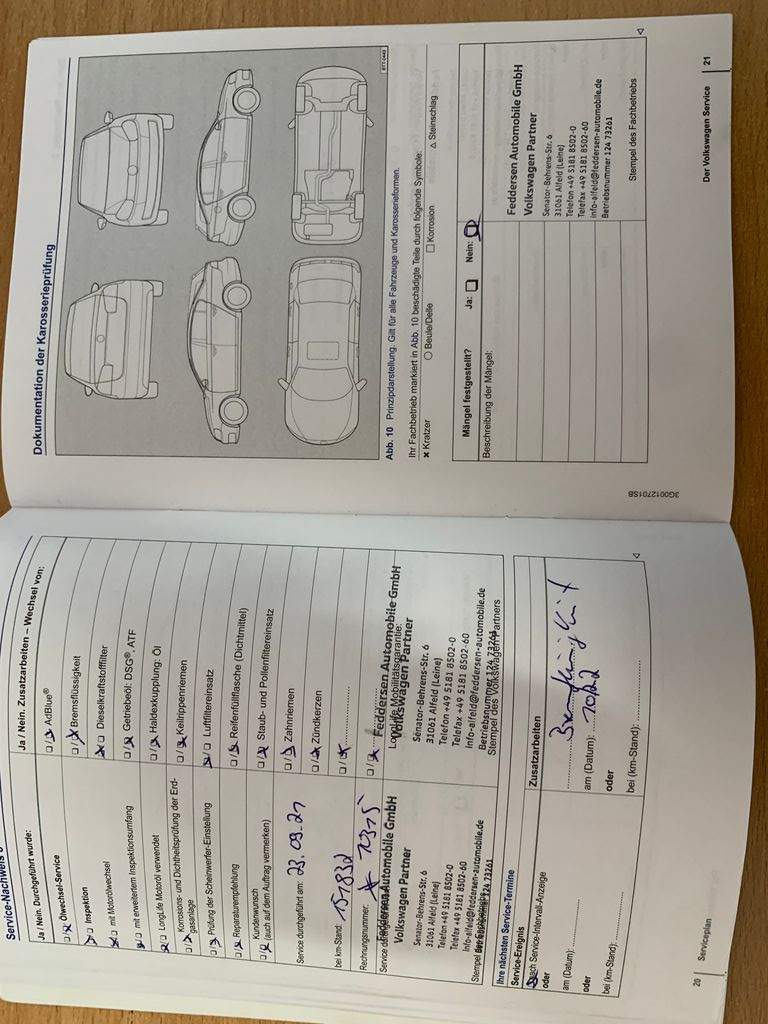 Service-Nachweis
Ja / Nein. Durchgeführt wurde:
Ölwechsel-Service
Inspektion
mit Motorölwechsel
mit erweitertem Inspektionsumfang
LongLife Motoröl verwendet
Korrosions- und Dichtheitsprüfung der Erd-
gasanlage
Prüfung der Scheinwerfer-Einstellung
Reparaturempfehlung
Kundenwunsch
(auch auf dem Auftrag vermerken)
Service durchgeführt am: 23.09.21
bei km-Stand: 151832
Rechnungsnummer: 10315
Feddersen Automobile GmbH
Volkswagen Partner
Senator-Behrens-Str. 6
31061 Alfeld (Leine)
Telefon +49 5181 8502-0
Telefax +49 5181 8502-60
info-alfeld@feddersen-automobile.de
Betriebsnummer 124 73261
Ja / Nein. Zusatzarbeiten – Wechsel von:
AdBlue®
Bremsflüssigkeit
Dieselkraftstofffilter
Getriebeöl: DSG®, ATF
Haldexkupplung: Öl
Keilrippenriemen
Luftfiltereinsatz
Reifenfüllflasche (Dichtmittel)
Staub- und Pollenfiltereinsatz
Zahnriemen
Zündkerzen
LongLife Mobilitätsgarantie:
Feddersen Automobile GmbH
Volkswagen Partner
Senator-Behrens-Str. 6
31061 Alfeld (Leine)
Telefon +49 5181 8502-0
Telefax +49 5181 8502-60
info-alfeld@feddersen-automobile.de
Betriebsnummer 124 73261
Stempel des Volkswagen Partners
Ihre nächsten Service-Termine
Service-Ereignis
nach Service-Intervall-Anzeige
oder
am (Datum):
oder
bei (km-Stand):
Zusatzarbeiten
am (Datum): 10/22
oder
bei (km-Stand):
20 Serviceplan
Dokumentation der Karosserieprüfung
BTT-0449
Abb. 10 Prinzipdarstellung. Gilt für alle Fahrzeuge und Karosserieformen.
Ihr Fachbetrieb markiert in Abb. 10 beschädigte Teile durch folgende Symbole:
× Kratzer ○ Beule/Delle □ Korrosion △ Steinschlag
Mängel festgestellt? Ja: Nein:
Beschreibung der Mängel:
Feddersen Automobile GmbH
Volkswagen Partner
Senator-Behrens-Str. 6
31061 Alfeld (Leine)
Telefon +49 5181 8502-0
Telefax +49 5181 8502-60
info-alfeld@feddersen-automobile.de
Betriebsnummer 124 73261
Stempel des Fachbetriebs
3G0012701SB
Der Volkswagen Service 21